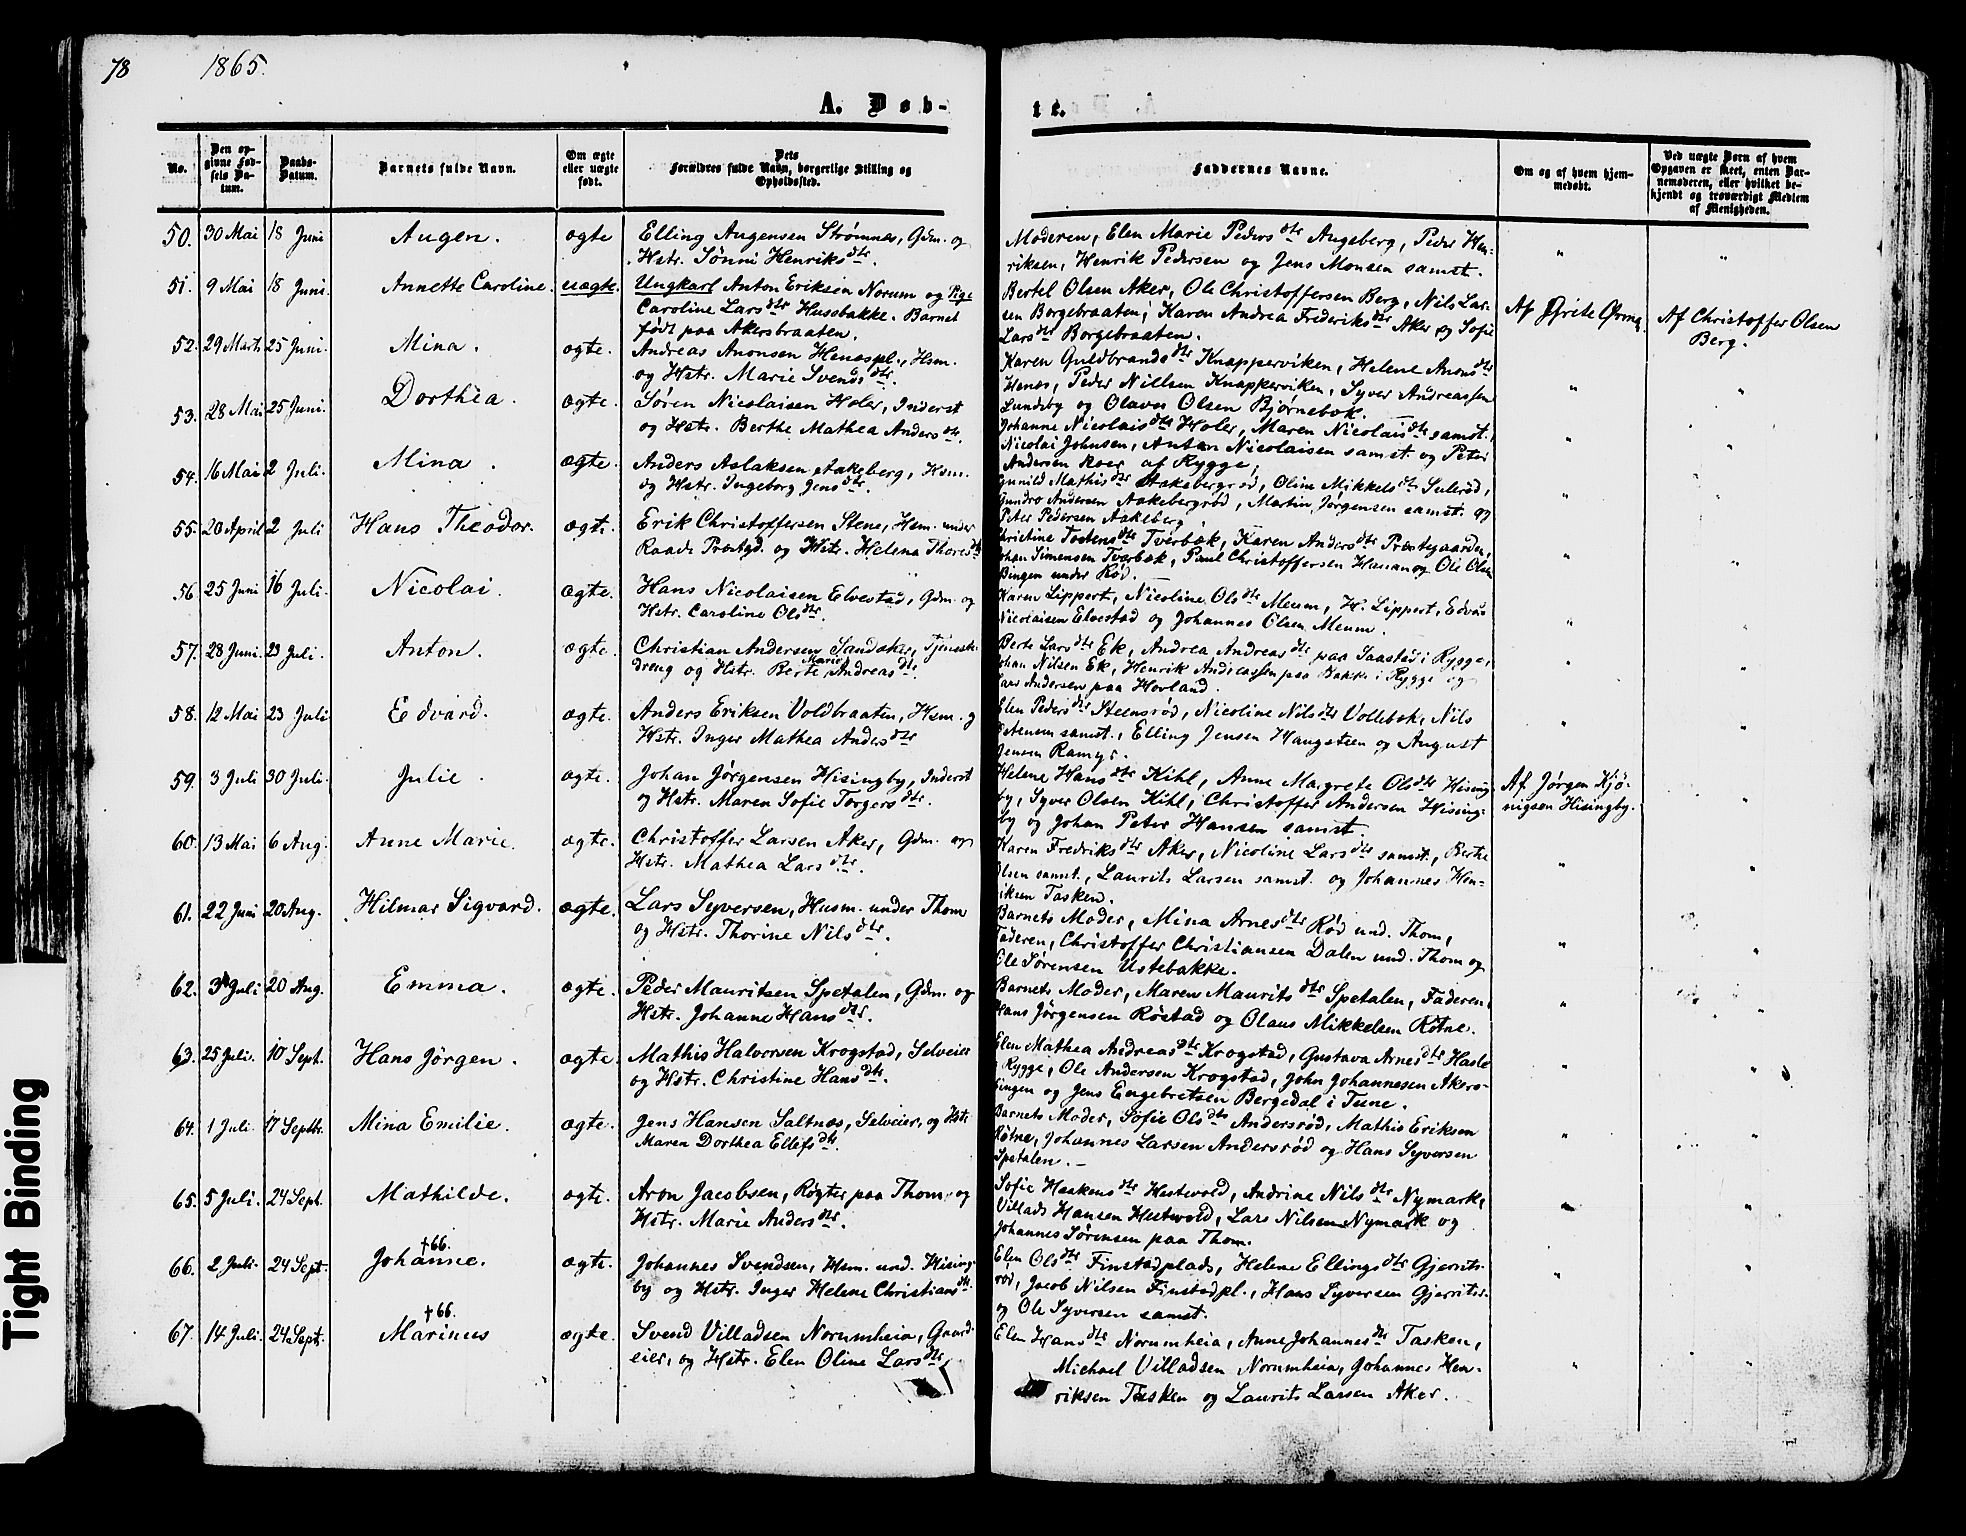 78 1865.
A. Døb-
te.
No.
Den op-
givne Fød-
sels Da-
tum.
Daabs-
Datum.
Barnets fulde Navn.
Om ægte
eller uægte
født.
Dets
Forældres fulde Navn, borgerlige Stilling og
Opholdssted.
Faddernes Navne.
Om og af hvem hjem-
medøbt.
Ved uægte Børn af hvem
Opgaven er skeet, enten Bar-
nemoderen, eller hvilket be-
kjendt og troværdigt Medlem
af Menigheden.
50. 30 Mai 18 Juni Augen. ægte Elling Augensen Strømnæs, Gdm. og
Hstr. Sønni Henriksdtr.
Moderen, Elen Marie Pedersdtr Augeberg, Peder Hen-
riksen, Henrik Pedersen og Jens Monsen samst.
51. 9 Mai 18 Juni. Annette Caroline. uægte. Ungkarl Anton Eriksen Norum og Pige
Caroline Larsdtr Husebakke. Barnet
født paa Akersbraaten.
Bertel Olsen Aker, Ole Christoffersen Berg, Nils Lar-
sen Borgebraaten, Karen Andrea Frederiksdtr Aker og Sofie
Larsdtr Borgebraaten.
Af Christoffer Olsen
Berg.
52. 29 Marts 25 Juni. Mina. ægte. Andreas Anonsen Henæspl., Hsm.
og Hstr. Marie Svendsdtr.
Karen Guldbrandsdtr Knapperviken, Helene Anonsdtr
Henæs, Peder Nilsen Knapperviken, Syver Andreassen
Lundeby og Olaves Olsen Bjørnebæk.
53. 28 Mai 25 Juni. Dorthea. ægte. Søren Nicolaisen Holer, Inderst
og Hstr. Berthe Mathea Andersdtr.
Johanne Nicolaisdtr Holer, Maren Nicolaisdtr samst.
Nicolai Johnsen, Anton Nicolaisen samst. og Peter
Andersen Roer af Rygge.
54. 16 Mai 2 Juli. Mina. ægte. Anders Aslaksen Aakeberg, Hsm.
og Hstr. Ingeborg Jensdtr.
Gunild Mathisdtr Aakebergrød, Oline Mikkelsdtr Sulerød,
Andersen Aakebergrød, Martin Jørgensen samst. og
Peter Pedersen Aakeberg
55. 20 April 2 Juli Hans Theodor. ægte. Erik Christoffersen Stene, Hsm. under
Raade Præstgd. og Hstr. Helena Thoresdtr
Christine Tostensdtr Tverbæk, Karen Andersdtr Præstegaarden,
Johan Simensen Tverbæk, Paul Christoffersen Hanan og Ole Olsen
Bingen under Rød.
56 25 Juni 16 Juli. Nicolai. ægte. Hans Nicolaisen Elvestad, Gdm. og
Hstr. Caroline Olsdtr.
Karen Lippert, Nicoline Olsdtr Meum, H. Lippert, Edvard
Nicolaisen Elvestad og Johannes Olsen Meum.
57. 28 Juni. 23 Juli. Anton. ægte. Christian Andersen Sandaker, Tjeneste-
dreng og Hstr. Berte Marie Andreasdtr.
Berte Larsdtr Ek, Andrea Andreasdtr paa Saastad i Rygge,
Johan Nilsen Ek, Henrik Andreassen paa Bakke i Rygge og
Lars Andersen paa Hovland.
58. 12 Mai 23 Juli Edvard. ægte. Anders Eriksen Voldbraaten, Hsm. og
Hstr. Inger Mathea Andersdtr
Elen Pedersdtr Steensrød, Nicoline Nilsdtr Vollebæk, Nils
Petersen samst., Elling Jensen Haugsteen og August
Jensen
59. 3 Juli 30 Juli. Julie. ægte. Johan Jørgensen Hisingby, Inderst
og Hstr. Maren Sofie Torgersdtr.
Helene Hansdtr Kihl, Anne Margrete Olsdtr Hising-
by, Syver Olsen Kihl, Christoffer Andersen Hising-
by og Johan Peter Hansen samst.
Af Jørgen Kjø-
nigsen Hisingby.
60. 13 Mai 6 Aug. Anne Marie. ægte. Christoffer Larsen Aker, Gdm. og
Hstr. Mathea Larsdtr.
Karen Fredriksdtr Aker, Nicoline Larsdtr samst., Berthe
Olsen samst., Laurits Larsen samst. og Johannes Hen-
riksen Tasken.
61. 22 Juni 20 Aug. Hilmar Sigvard. ægte. Lars Syversen, Husm. under Thom
og Hstr. Thorine Nilsdtr.
Barnets Moder, Mina Arnesdtr Rød und. Thom,
Faderen, Christoffer Christiansen Dalen und. Thom og
Ole Sørensen Ustebakke.
62. 3 Juli 20 Aug. Emma. ægte. Peder Mauritsen Spetalen, Gdm. og
Hstr. Johanne Hansdtr.
Barnets Moder, Maren Mauritsdtr Spetalen, Faderen,
Hans Jørgensen Røstad og Olaus Mikkelsen Røtne.
63. 25 Juli. 10 Sept. Hans Jørgen. ægte. Mathis Halvorsen Krogstad, Selveier
og Hstr. Christine Hansdtr.
Elen Mathea Andreasdtr Krogstad, Gustava Arnesdtr Hasle
i Rygge, Ole Andersen Krogstad, John Johannesen Akers-
Engen og Jens Engebretsen Bergedal i Tune.
64. 1 Juli. 17 Septbr. Mina Emilie. ægte. Jens Hansen Saltnæs, Selveier, og Hstr
Maren Dorthea Ellefsdtr.
Barnets Moder, Sofie Olsdtr Andersrød, Mathis Eriksen
Røtne, Johannes Larsen Andersrød og Hans Syversen
Spetalen.
65. 5 Juli. 24 Sept. Mathilde. ægte. Aron Jacobsen, Røgter paa Thom, og
Hstr. Marie Andersdtr.
Sofie Haakensdtr Hestvold, Andrine Nilsdtr Nymark,
Villads Hansen Hestvold, Lars Nilsen Nymark og
Johannes Sørensen paa Thom.
66. 2 Juli. 24 Sept. †66. Johanne. ægte. Johannes Svendsen, Hsm. und. Hising-
by og Hstr. Inger Helene Christiansdtr.
Elen Olsdtr Finstadplads, Helene Ellingsdtr Gjerrits-
rød, Jacob Nilsen Finstadpl., Hans Syversen Gjerritsr.
og Ole Syversen samst.
67. 14 Juli. 24 Sept. †66. Marinus ægte. Svend Villadsen Norumheia, Gaard-
eier, og Hstr. Elen Oline Larsdtr.
Elen Hansdtr Norumheia, Anne Johannesdtr Tasken,
Michael Villadsen Norumheia, Johannes Hen-
riksen Tasken og Laurits Larsen Aker.
Tight Binding